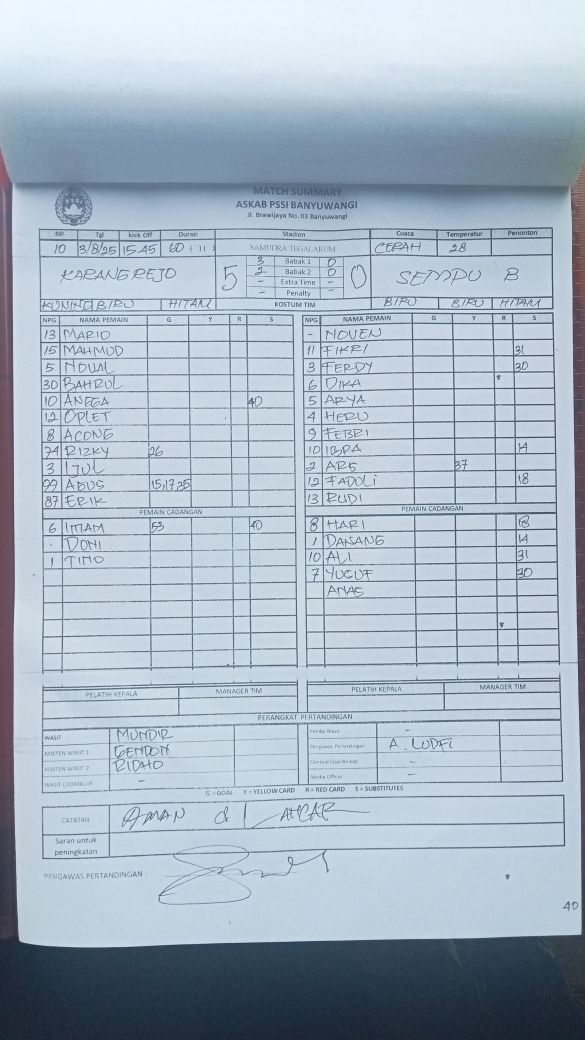 MATCH SUMMARY
ASKAB PSSI BANYUWANGI
Jl. Brawijaya No. 03 Banyuwangi
NP Tgl kick Off Durasi Stadion Cuaca Temperatur Penonton
10 3/8/25 15.45 60 ( ) ( ) SAMUDRA TEGALARUM CERAH 28
KARANGREJO 5 0 SEMPU B
3 Babak 1 0
2 Babak 2 0
- Extra Time -
- Penalty -
KUNING BIRU HITAM KOSTUM TIM BIRU BIRU HITAM
NPG NAMA PEMAIN G Y R S NPG NAMA PEMAIN G Y R S
13 MARIO - NOVEN
15 MAHMUD 11 FIKRI 31
5 NOVAL 3 FERDY 30
30 BAHRUL 6 DIKA
10 ANGGA 40 5 ARYA
12 OPLET 4 HERU
8 ACONG 9 FEBRI
74 RIZKY 26 10 IBRA 14
3 IJUL 2 ARS 37
99 AGUS 15,17,35 12 FADOLI 18
87 ERIK 13 RUDI
PEMAIN CADANGAN PEMAIN CADANGAN
6 IMAM 53 40 8 HARI 18
- DONI 1 DANANG 14
1 TINO 10 ALI 31
7 YUCUF 30
ANAS
PELATIH KEPALA MANAGER TIM PELATIH KEPALA MANAGER TIM
PERANGKAT PERTANDINGAN
WASIT MUNDIR Penilai Wasit -
ASISTEN WASIT 1 GENDON Pengawas Pertandingan A. LUDFI
ASISTEN WASIT 2 RIDHO General Coordinator -
WASIT CADANGAN - Media Officer -
G = GOAL Y = YELLOW CARD R = RED CARD S = SUBSTITUTES
CATATAN AMAN & LANCAR
Saran untuk
peningkatan
PENGAWAS PERTANDINGAN :
40